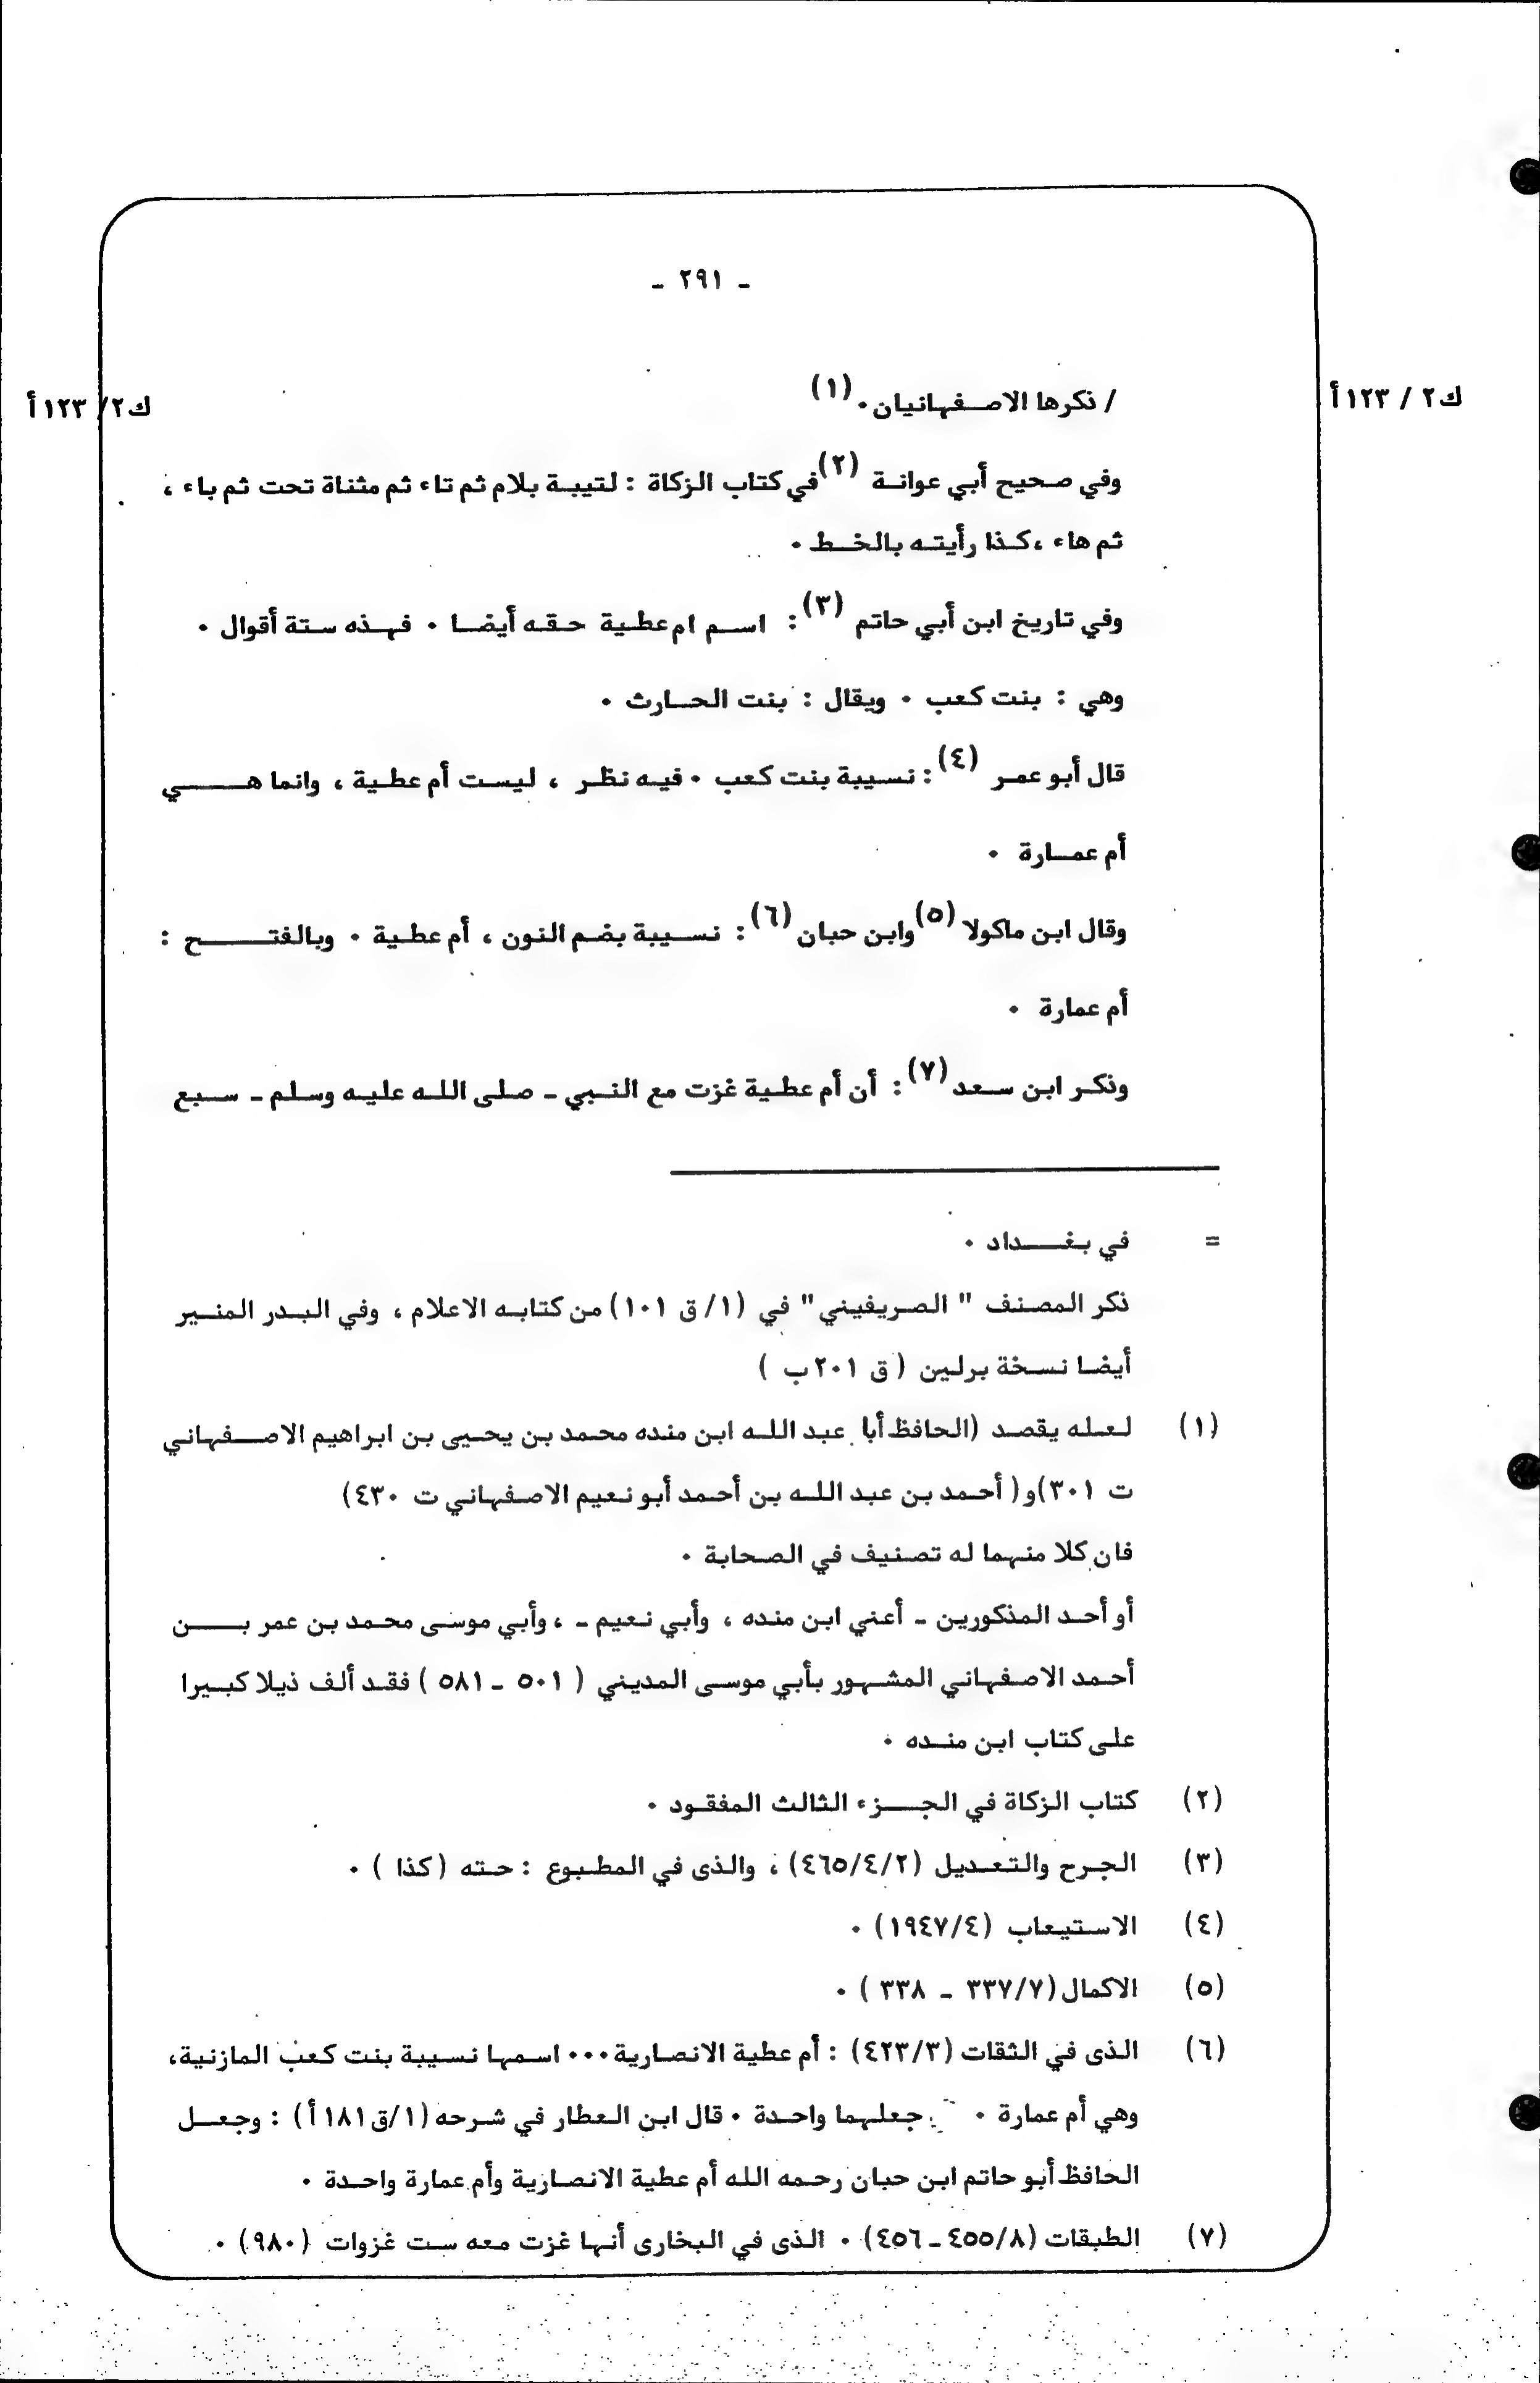 - ٢٩١ -
ك٢ / ١٢٣أ
/ ذكرها الاصفهانيان٠(١)
ك٢/ ١٢٣أ
وفي صحيح أبي عوانة (٢) في كتاب الزكاة : لتيبة بلام ثم تاء ثم مثناة تحت ثم باء ،
ثم هاء ،كذا رأيته بالخط ٠
وفي تاريخ ابن أبي حاتم (٣): اسم ام عطية حقه أيضا ٠ فهذه ستة أقوال ٠
وهي : بنت كعب ٠ ويقال : بنت الحارث ٠
قال أبو عمر (٤): نسيبة بنت كعب ٠ فيه نظر ، ليست أم عطية ، وانما هي
أم عمارة ٠
وقال ابن ماكولا (٥) وابن حبان (٦): نسيبة بضم النون ، أم عطية ٠ وبالفتح :
أم عمارة ٠
وذكر ابن سعد (٧): أن أم عطية غزت مع النبي - صلى الله عليه وسلم - سبع
= في بغداد ٠
ذكر المصنف " الصريفيني" في (١/ ق ١٠١) من كتابه الاعلام ، وفي البدر المنير
أيضا نسخة برلين ( ق ٢٠١ب )
(١) لعله يقصد (الحافظ أبا عبد الله ابن منده محمد بن يحيى بن ابراهيم الاصفهاني
ت ٣٠١)و( أحمد بن عبد الله بن أحمد أبو نعيم الاصفهاني ت ٤٣٠)
فان كلا منهما له تصنيف في الصحابة ٠
أو أحد المذكورين - أعني ابن منده ، وأبي نعيم - ، وأبي موسى محمد بن عمر بن
أحمد الاصفهاني المشهور بأبي موسى المديني ( ٥٠١ - ٥٨١ ) فقد ألف ذيلا كبيرا
على كتاب ابن منده ٠
(٢) كتاب الزكاة في الجزء الثالث المفقود ٠
(٣) الجرح والتعديل (٤٦٥/٤/٢) ، والذى في المطبوع : حته ( كذا ) ٠
(٤) الاستيعاب (١٩٤٧/٤) ٠
(٥) الاكمال (٣٣٧/٧ - ٣٣٨ ) ٠
(٦) الذى في الثقات (٤٢٣/٣) : أم عطية الانصارية٠٠٠ اسمها نسيبة بنت كعب المازنية،
وهي أم عمارة ٠ جعلهما واحدة ٠ قال ابن العطار في شرحه (١/ق١٨١أ) : وجعل
الحافظ أبو حاتم ابن حبان رحمه الله أم عطية الانصارية وأم عمارة واحدة ٠
(٧) الطبقات (٤٥٥/٨ - ٤٥٦) ٠ الذى في البخارى أنها غزت معه ست غزوات (٩٨٠) ٠